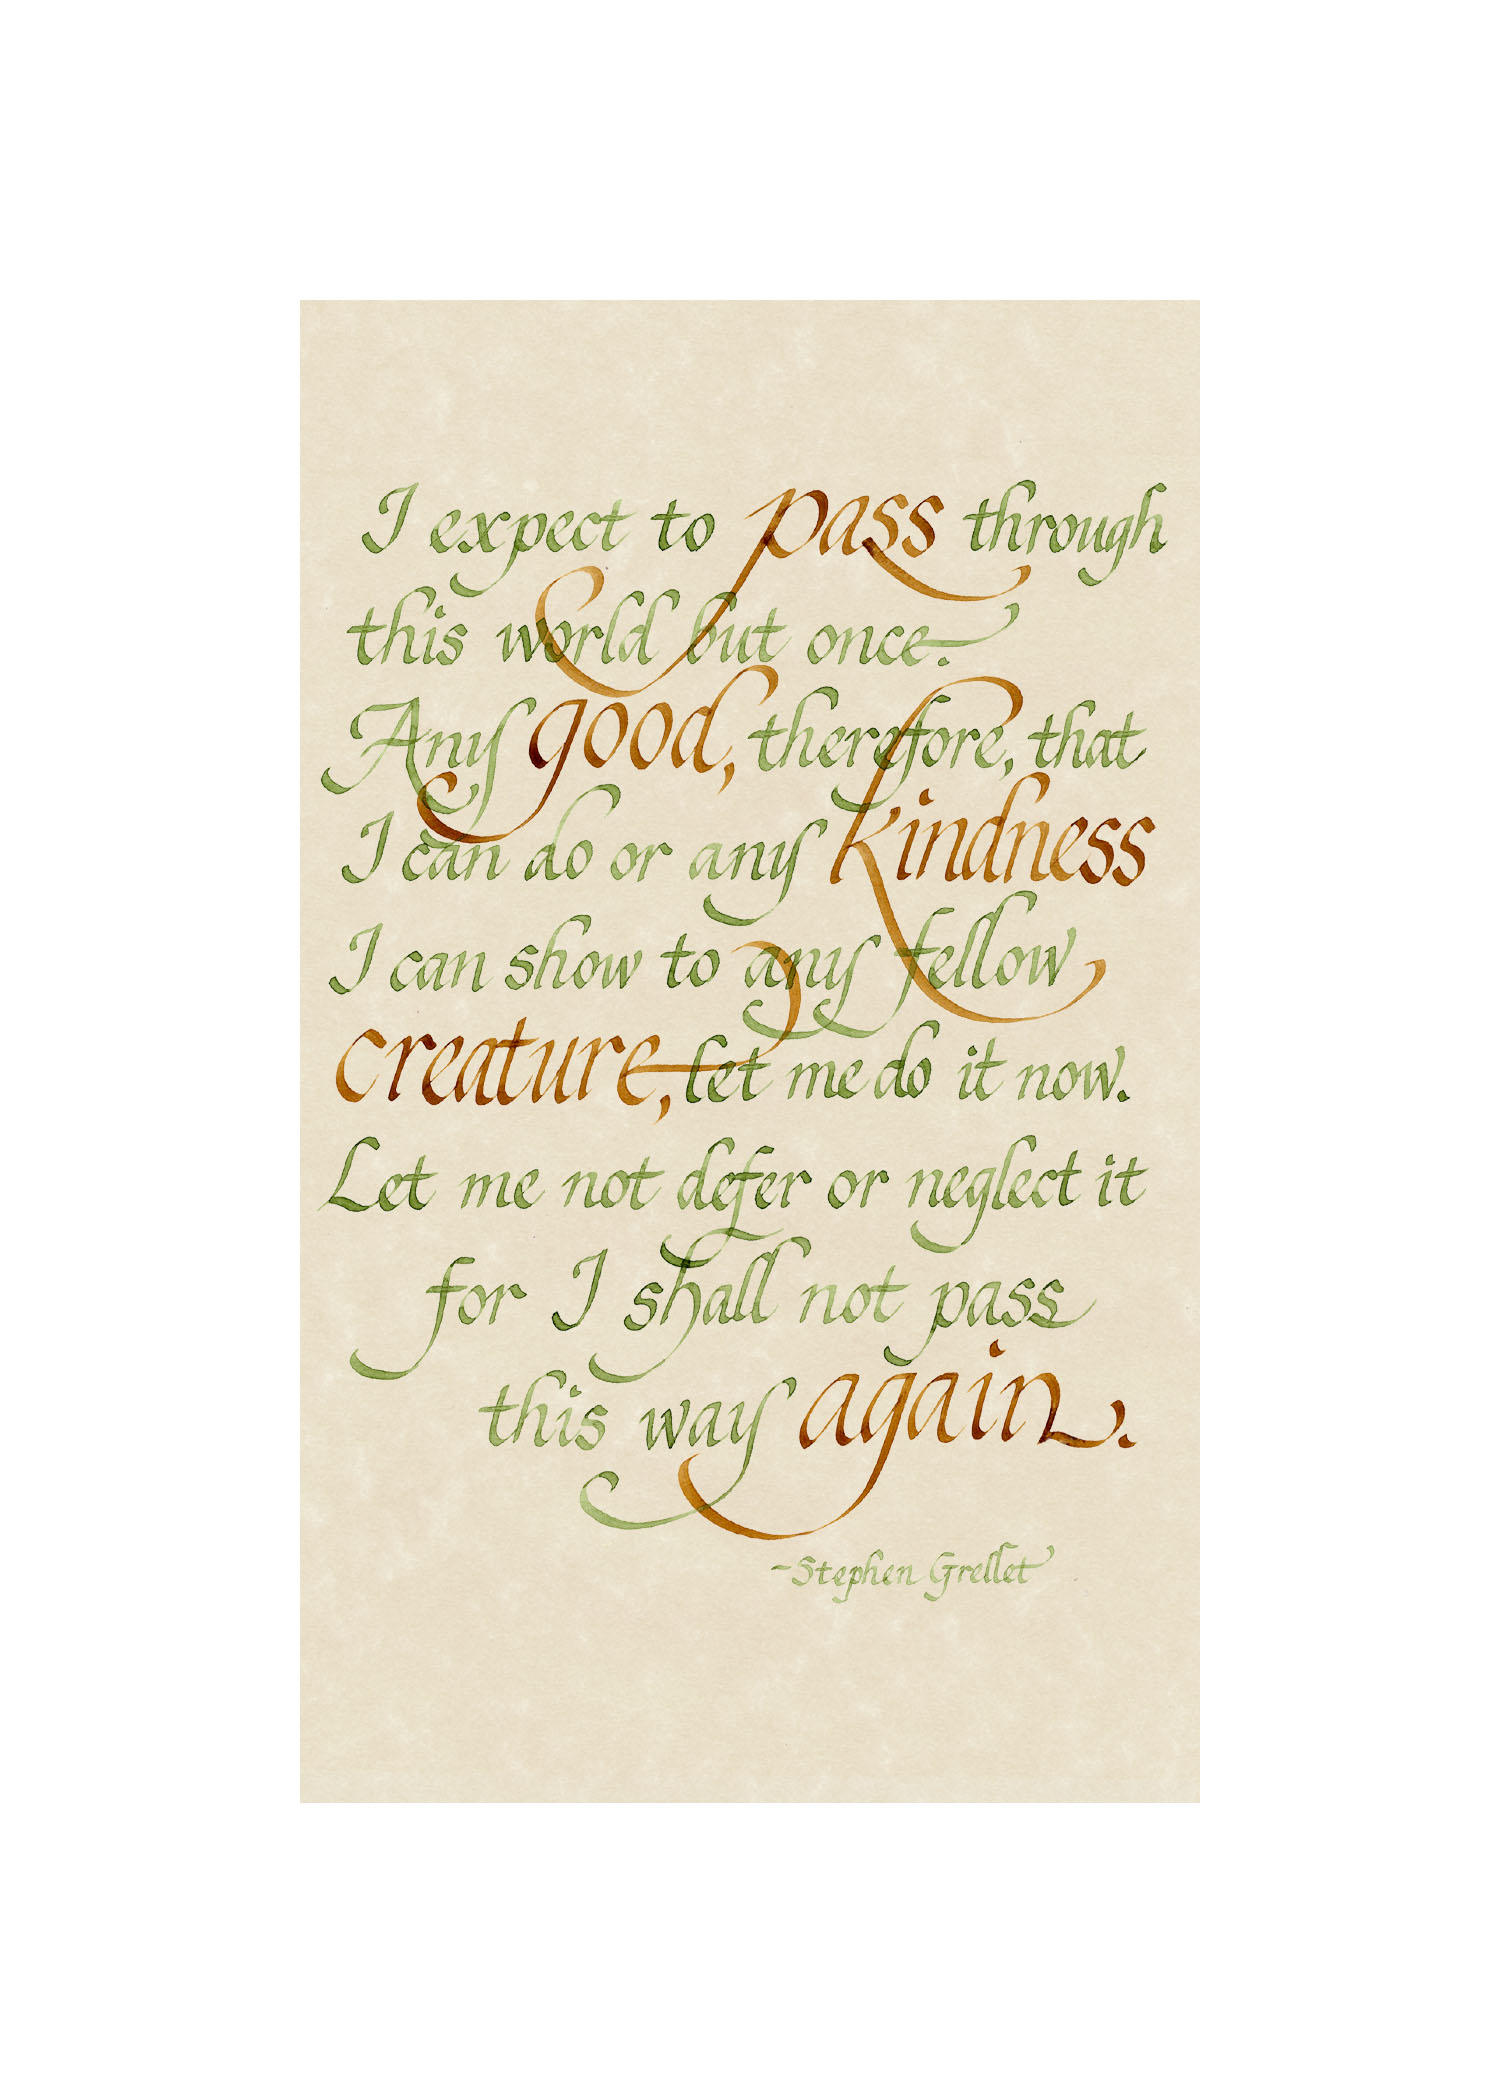 I expect to pass through
this world but once.
Any good, therefore, that
I can do or any kindness
I can show to any fellow
creature, let me do it now.
Let me not defer or neglect it
for I shall not pass
this way again.
~Stephen Grellet